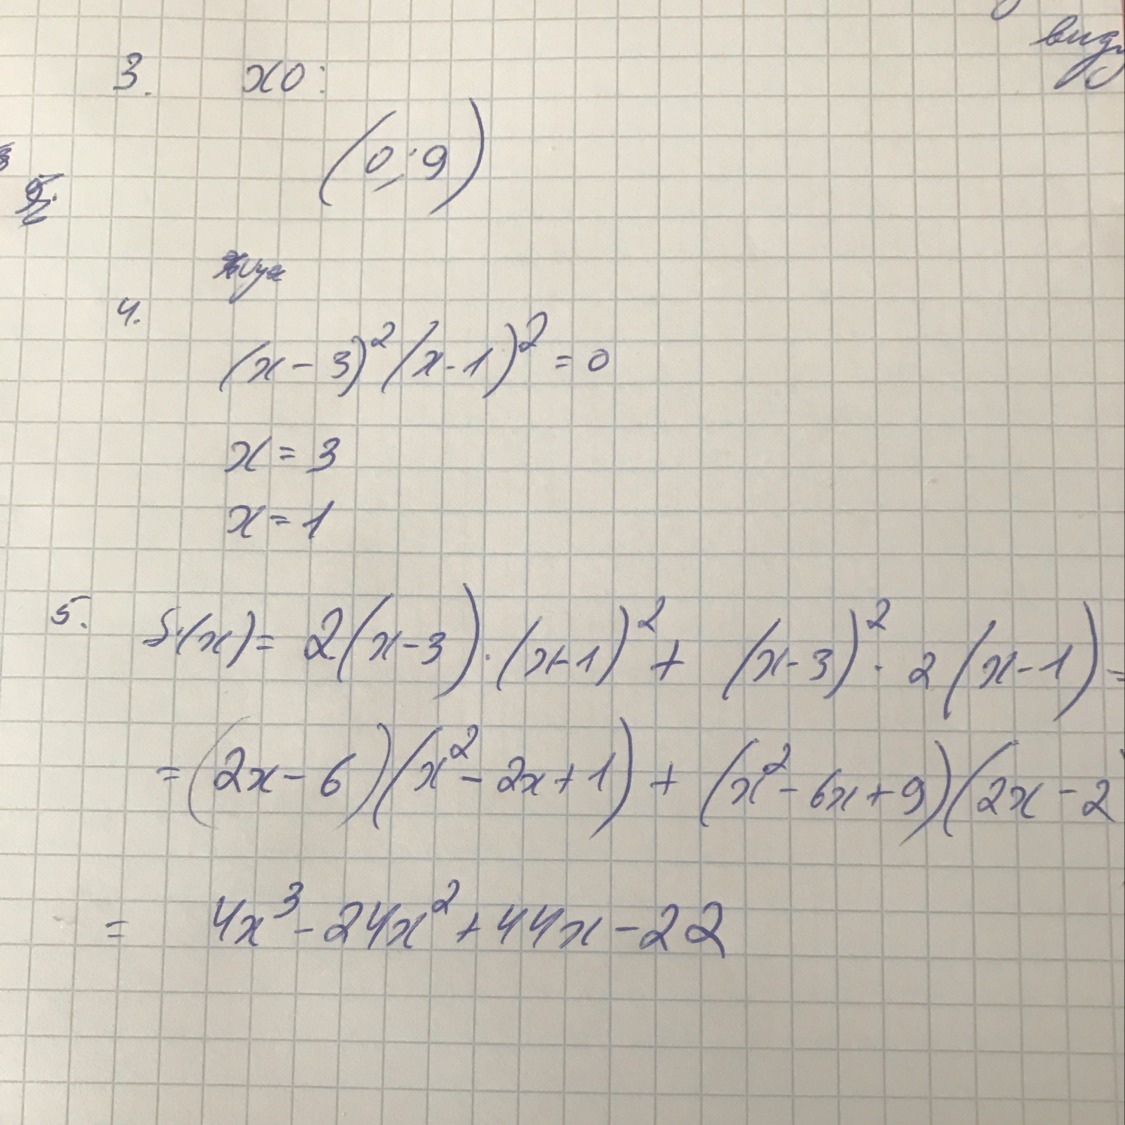 вид
3. x0:
(0;9)
4.
(x-3)²(x-1)²=0
x=3
x=1
5. f'(x)= 2(x-3)·(x-1)²+ (x-3)²·2(x-1)=
=(2x-6)(x²-2x+1)+(x²-6x+9)(2x-2
= 4x³-24x²+44x-22